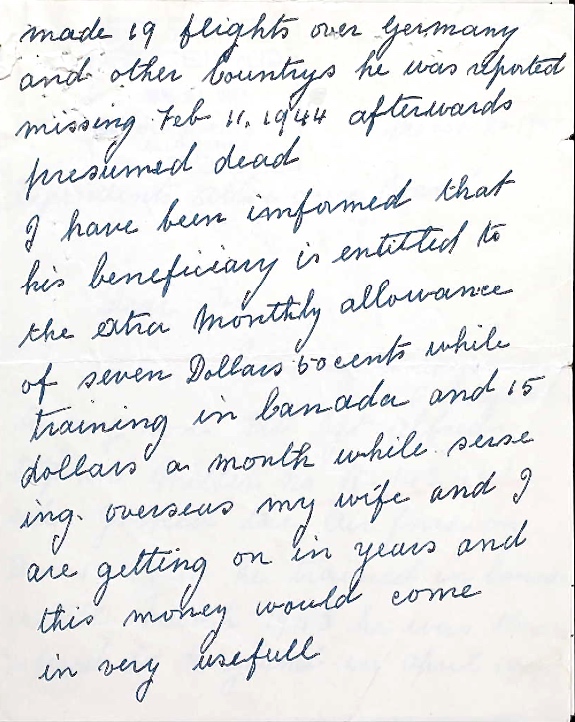 made 19 flights over Germany
and other Countrys he was reported
missing Feb 11. 1944 afterwards
presumed dead
I have been imformed that
his beneficiary is entitled to
the extra Monthly allowance
of seven Dollars 50 cents while
training in Canada and 15
dollars a month while serse
ing. overseas my wife and I
are getting on in years and
this money would come
in very usefull